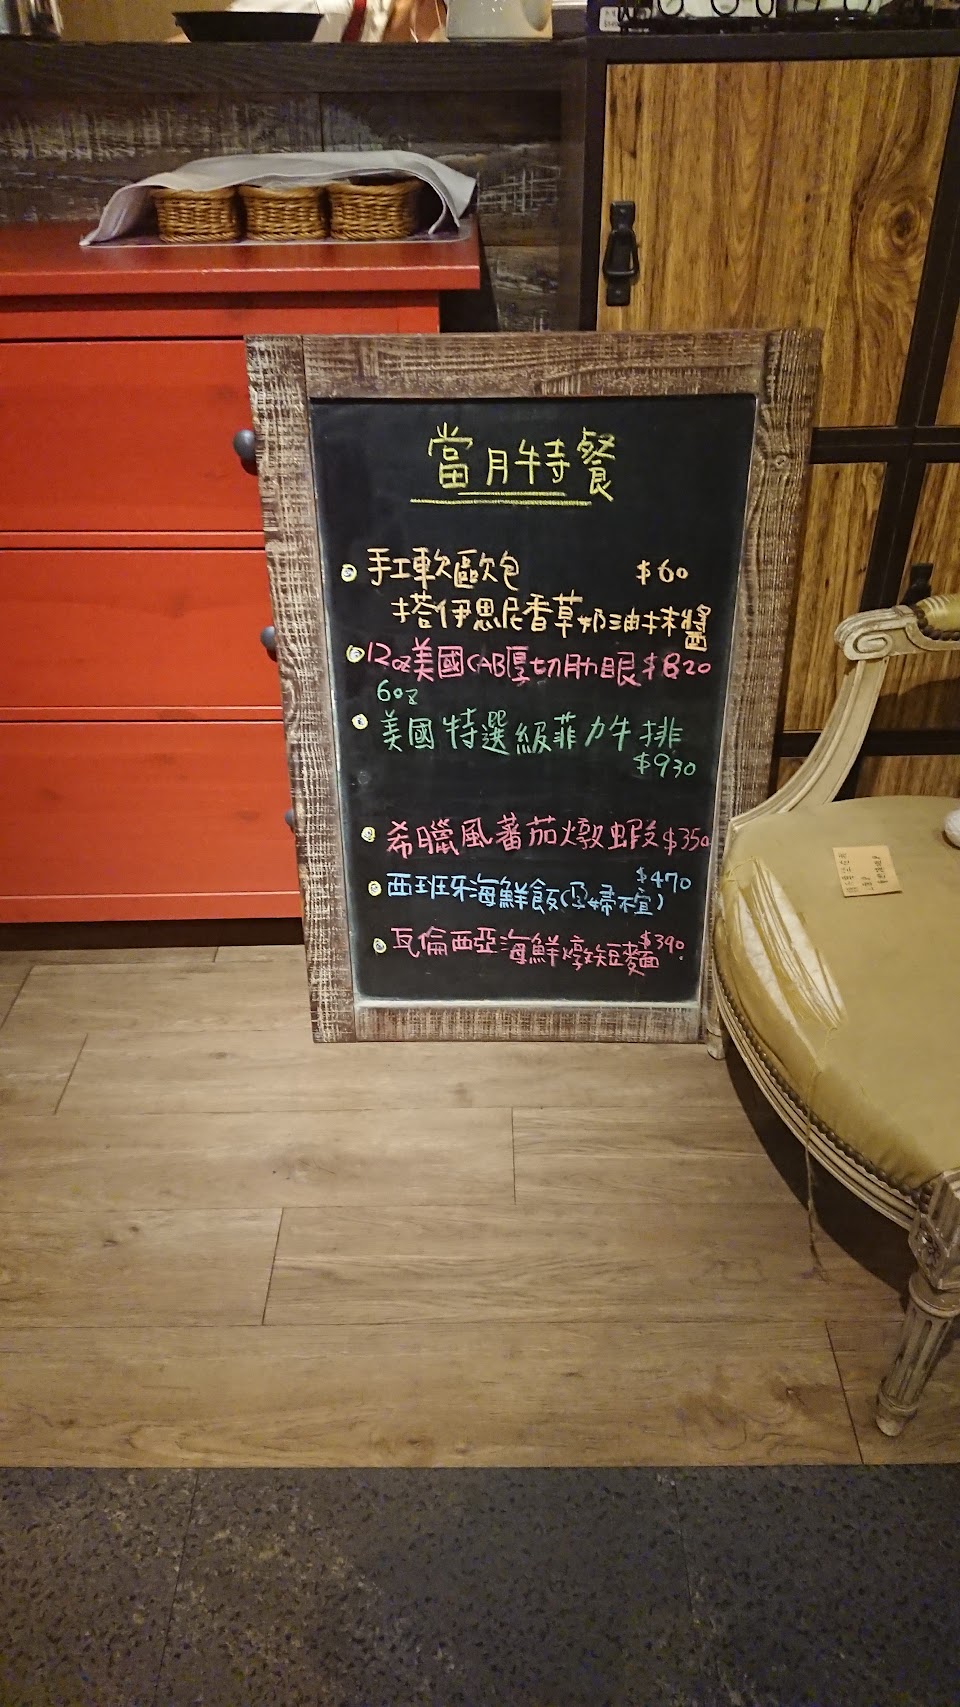 當月特餐
手工軟歐包 $60
搭伊思尼香草奶油抹醬
12oz美國CAB厚切肋眼 $820
6oz
美國特選級菲力牛排
$930
希臘風蕃茄燉蝦 $350
$470
西班牙海鮮飯(孕婦不宜)
$390
瓦倫西亞海鮮燉短麵